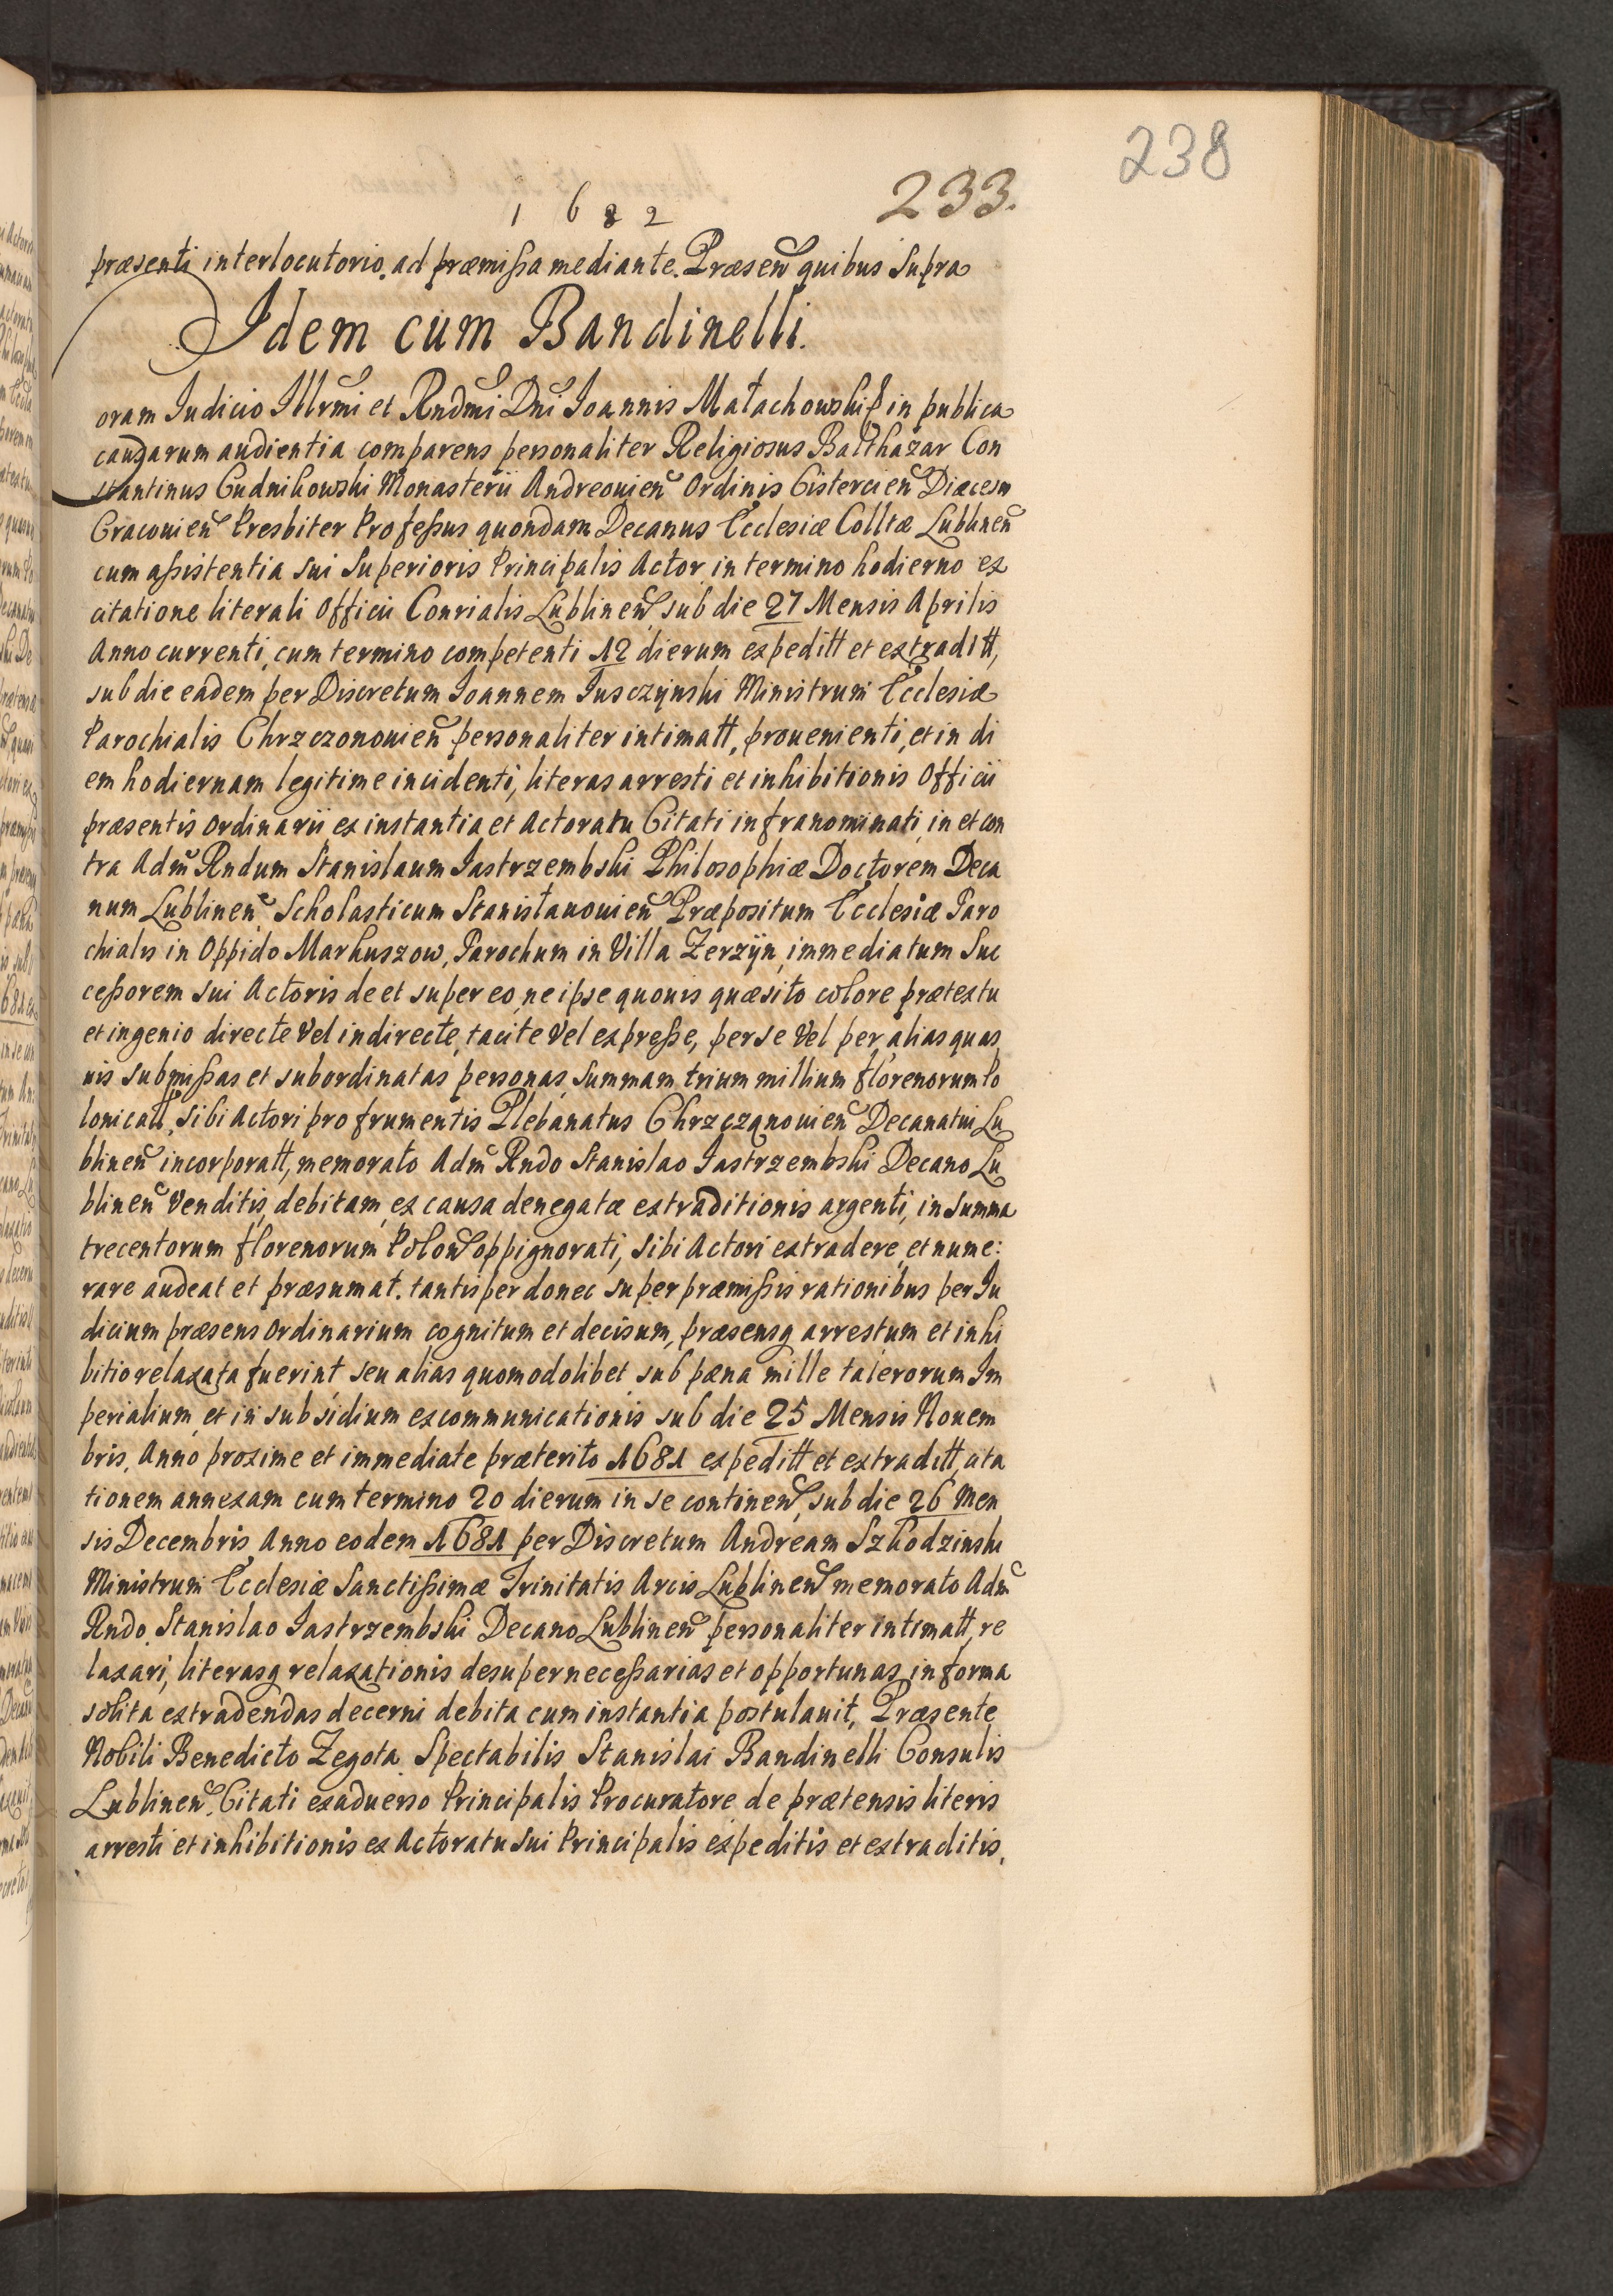 238
233.
1682
præsenti interlocutorio ad præmissa mediante. Præsen quibus supra
Idem cum Bandinelli.
Coram Iudicio Illrmi et Rndmi Dni Ioannis Małachowski in publica
causarum audientia comparens personaliter Religiosus Balthazar Con
stantinus Gudnikowski Monasterii Andreouien Ordinis Cistercien Diæcesis
Cracouien Presbiter Professus quondam Decanus Ecclesiæ Colltæ Lublinen
cum assistentia sui Superioris Principalis Actor in termino hodierno ex
citatione literali Officii Conrialis Lublinen sub die 27 Mensis Aprilis
Anno currenti, cum termino competenti 12 dierum expeditt et extraditt,
sub die eadem per Discretum Ioannem Tusczynski Ministrum Ecclesiæ
Parochialis Chrzczonouien personaliter intimatt, prouenienti, et in di
em hodiernam legitime incidenti, literas arresti et inhibitionis Officii
præsentis Ordinarii ex instantia et Actoratu Citati infranominati, in et con
tra Adm Rndum Stanislaum Iastrzembski Philosophiæ Doctorem Deca
num Lublinen, Scholasticum Stanisłauouien Præpositum Ecclesiæ Paro
chialis in Oppido Markuszow, Parochum in Villa Zerzyn, immediatum Suc
cessorem sui Actoris de et super eo, ne ipse quouis quæsito colore prætextu
et ingenio directe vel indirecte, tacite vel expresse, per se vel per alias quas
uis submissas et subordinatas personas, summam trium millium florenorum Po
lonicall, sibi Actori pro frumentis Plebanatus Chrzczonouien Decanatui Lu
blinen incorporatt, memorato Adm Rndo Stanislao Iastrzembski Decano Lu
blinen Venditis, debitam, ex causa denegatæ extraditionis argenti, in summa
trecentorum florenorum Polon oppignorati, sibi Actori extradere, et nume:
rare audeat et præsumat. tantisper donec super præmissis rationibus per Iu
dicium præsens Ordinarium cognitum et decisum, præsensq arrestum et inhi
bitio relaxata fuerint seu alias quomodolibet sub pæna mille talerorum Im
perialium, et in subsidium excommunicationis sub die 25 Mensis Nouem
bris, Anno proxime et immediate præterito 1681 expeditt et extraditt, cita
tionem annexam cum termino 20 dierum in se continen, sub die 26 Men
sis Decembris Anno eodem 1681 per Discretum Andream Szkodzinski
Ministrum Ecclesiæ Sanctissimæ Trinitatis Arcis Lublinen memorato Adm
Rndo Stanislao Iastrzembski Decano Lublinen personaliter intimatt, re
laxari, literasq relaxationis desuper necessarias et opportunas in forma
solita extradendas decerni debita cum instantia postulauit, Præsente
Nobili Benedicto Zegota Spectabilis Stanislai Bandinelli Consulis
Lublinen. Citati exaduerso Principalis Procuratore de prætensis literis
arresti et inhibitionis ex Actoratu sui Principalis expeditis et extraditis,